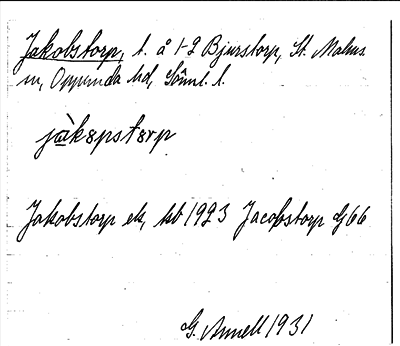 Jakobstorp, t. å 1-2 Bjurstorp, St. Malms
sn, Oppunda hd, Söml. l.
jàkɔpstɔrp
Jakobstorp ek, hb 1923 Jacobstorp G66
G. Annell 1931